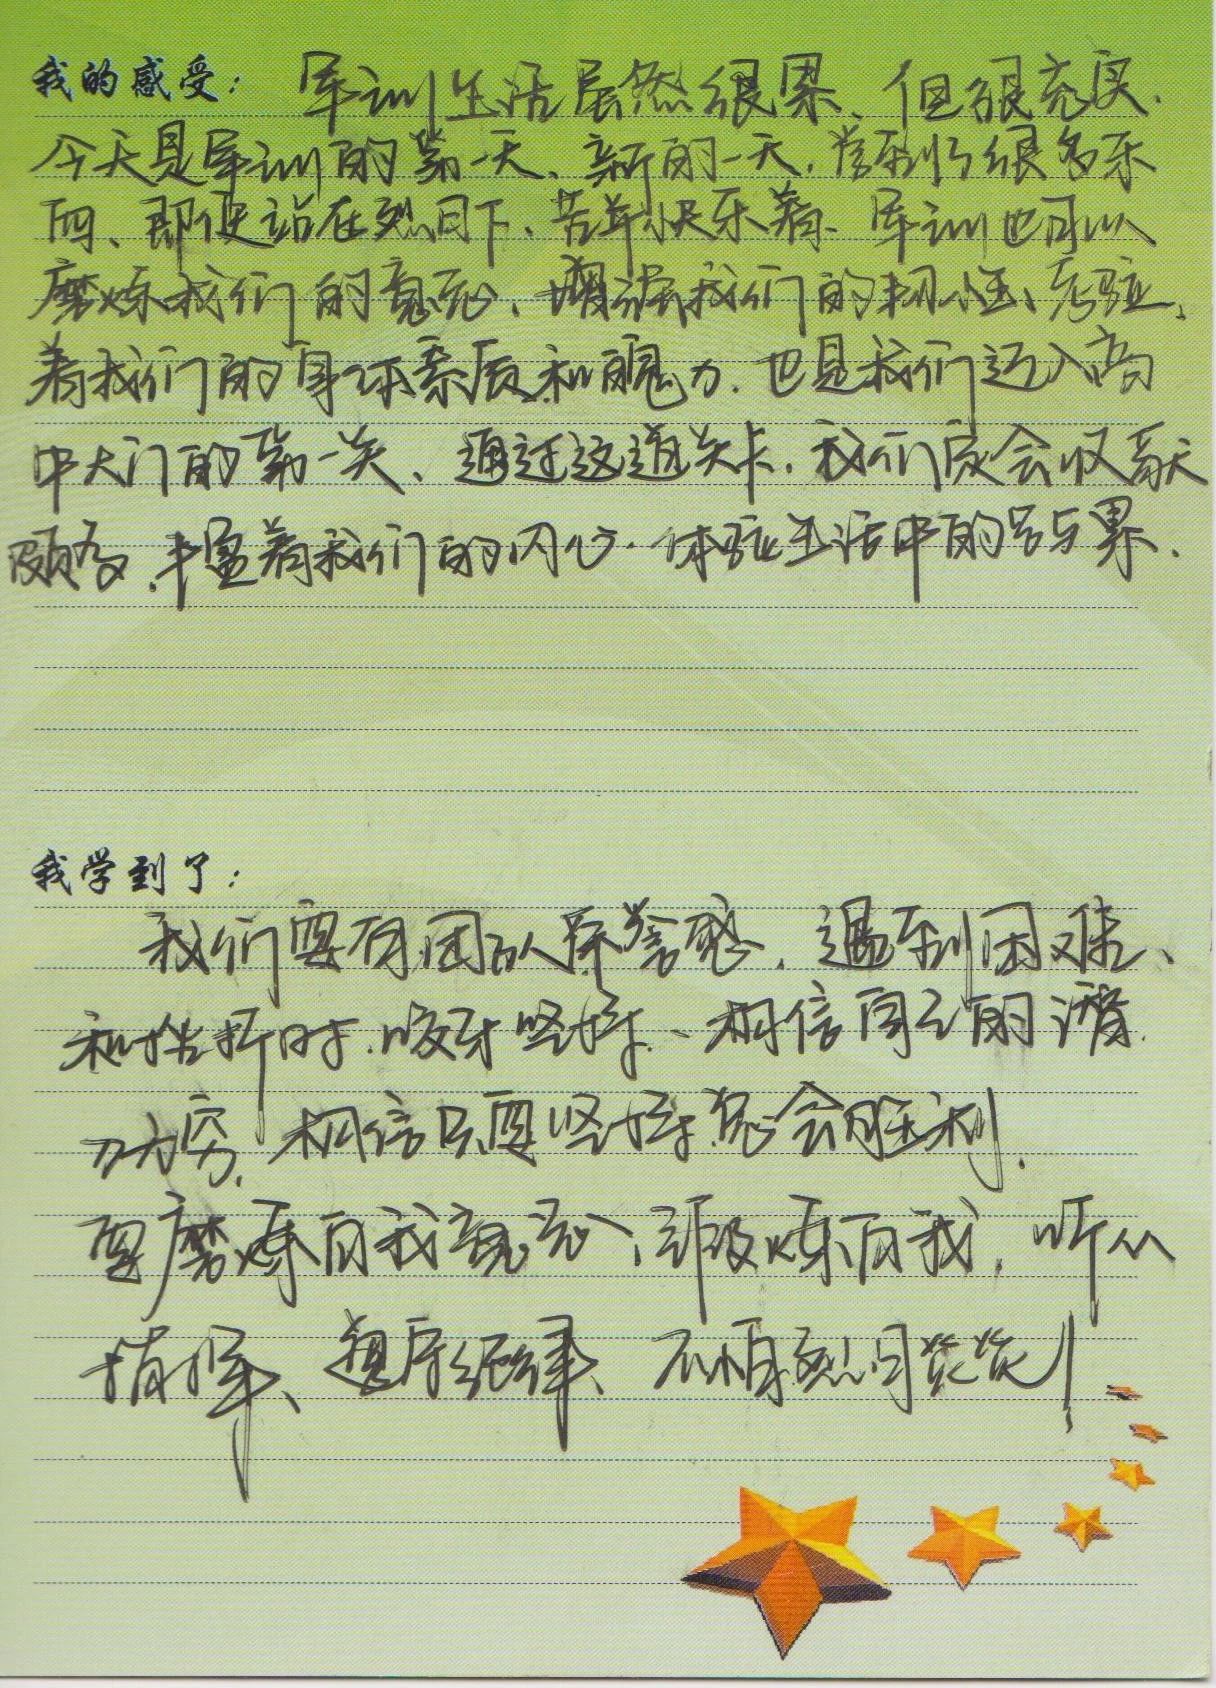 我的感受：军训生活虽然很累、但很充实.
今天是军训的第一天、新的一天,尝到了很多东
西、即使站在烈日下、苦并快乐着、军训也可以
磨炼我们的意志、增强我们的韧性、考验、
着我们的身体素质和毅力.也是我们迈入高
中大门的第一关、通过这道关卡,我们定会收获
颇多.丰盈着我们的内心.体验生活中的苦与累.
我学到了：
我们要有团队荣誉感,遇到困难、
和挫折时.咬牙坚持、相信自己的潜
力无穷,相信只要坚持总会胜利.
要磨炼自我意志、锻炼自我,听从
指挥、遵守纪律、不怕烈日炎炎!